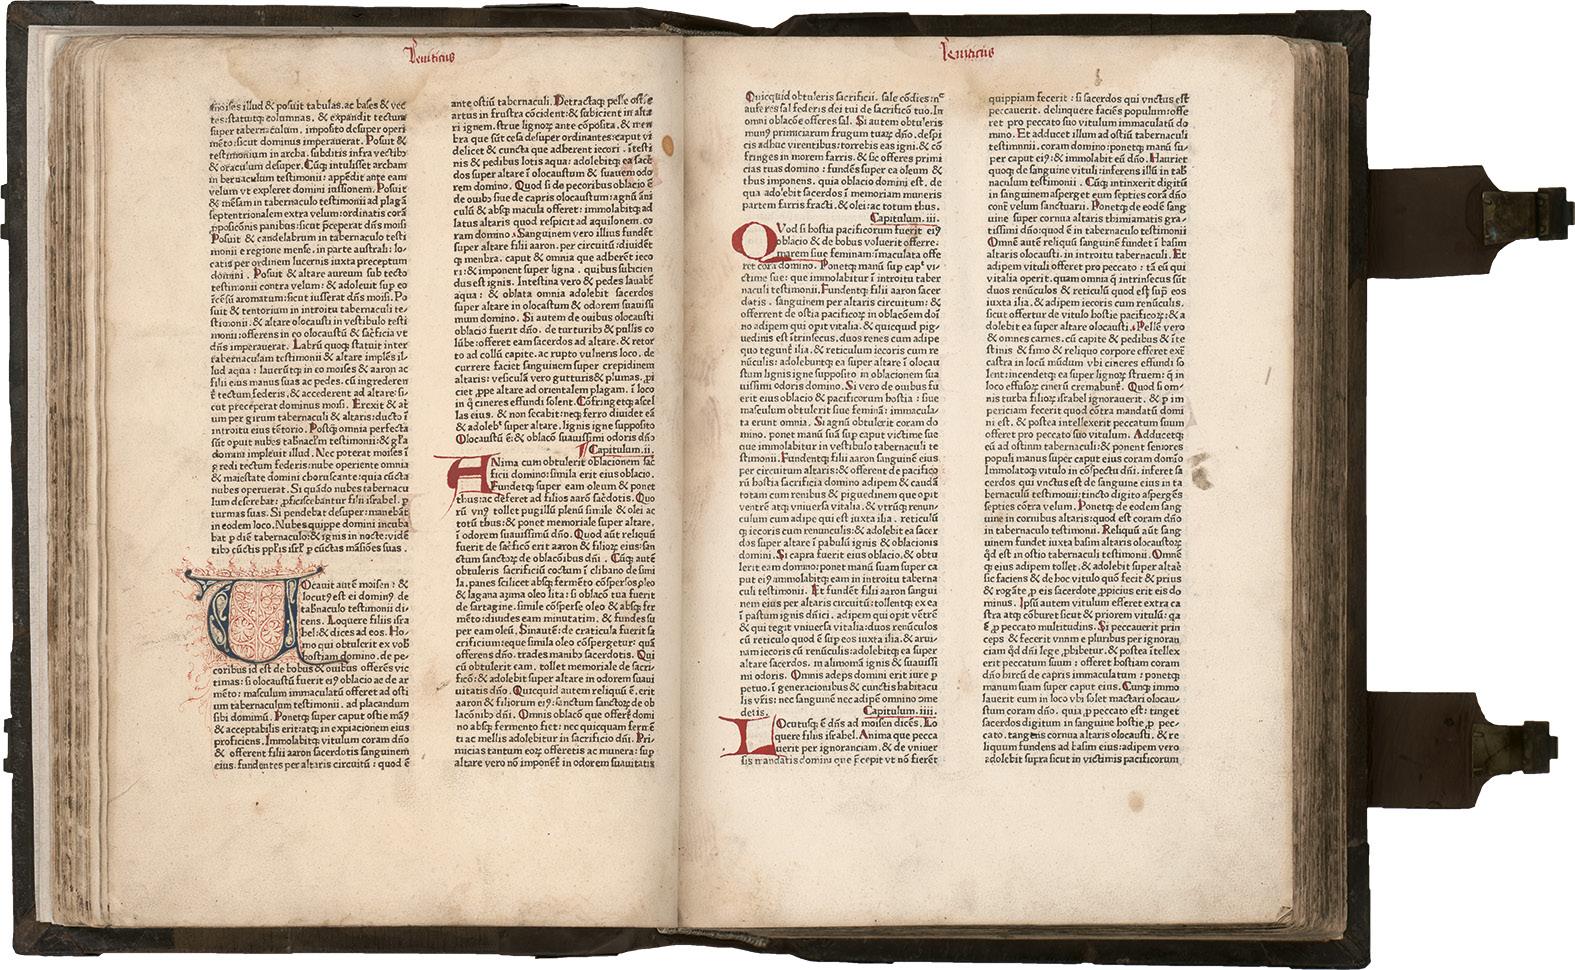 Leuiticus
moises illud & posuit tabulas. ac bases & vec
tes: statuitqꝫ columnas, & expandit tectum
super tabernaculum. imposito desuper operi
mēto: sicut dominus imperauerat. Posuit &
testimonium in archa. subditis infra vectibꝫ
& oraculum desuper. Cūqꝫ intulisset archam
in bernaculum testimonii: appēdit ante eam
velum vt expleret domini iussionem. Posuit
& mēsam in tabernaculo testimonii ad plagā
septentrionalem extra velum: ordinatis corā
pposicōnis panibus: sicut p̄ceperat dn̄s moisi
Posuit & candelabrum in tabernaculo testi
monii e regione mense. in parte australi: lo-
catis per ordinem lucernis iuxta preceptum
domini . Posuit & altare aureum sub tecto
testimonii contra velum: & adoleuit sup eo
īcēsū aromatum: sicut iusserat dn̄s moisi. Po
suit & tentorium in introitu tabernaculi te-
stimonii. & altare olocausti in vestibulo testi
monii: offerens in eo olocaustū & sac̄ficia vt
dn̄s imperauerat. Labrū quoqꝫ statuit inter
tabernaculam testimonii & altare implēs il-
lud aqua : lauerūtqꝫ in eo moises & aaron ac
filii eius manus suas ac pedes. cū ingrederen
t̄ tectum federis, & accederent ad altare: si-
cut preceperat dominus moisi. Erexit & at
um per girum tabernaculi & altaris: ducto ī
introitu eius tētorio. Postqꝫ omnia perfecta
sūt opuit nubes tabnac̄lm testimonii: & gl'a
domini impleuit illud. Nec poterat moises ī
gredi tectum federis: nube operiente omnia
& maiestate domini choruscante: quia cūcta
nubes operuerat. Si quādo nubes tabernacu
lum deserebat: pficiscebant̄ filii israhel. p
turmas suas. Si pendebat desuper: manebāt
in eodem loco. Nubes quippe domini incuba
bat p diē tabernaculo: & ignis in nocte: vidē
tibꝫ cūctis pplis isrl' p cūctas māsiōes suas .
VOcauit autē moisen : &
locutꝰ est ei dominꝰ de
tabn̄aculo testimonii di-
cens. Loquere filiis isra
hel: & dices ad eos. Ho-
mo qui obtulerit ex vob̄
hostiam domino. de pe-
coribus id est de bobus & ouibus offerēs vic
timas : si olocaustū fuerit eiꝰ oblacio ac de ar
mēto : masculum immaculatū offeret ad osti
um tabernaculi testimonii. ad placandum
sibi dominū. Ponetqꝫ super caput ostie manꝰ
& acceptabilis erit: atqꝫ in expiacionem eius
proficiens. Immolabitqꝫ vitulum coram dn̄o
& offerent filii aaron sacerdotis sanguinem
eius. fundentes per altaris circuitū : quod ē
ante ostiū tabernaculi. Detractaqꝫ pelle ostie
artus in frustra cōcident: & subicient in alta
ri ignem, strue lignoꝝ ante cōposita. & mem
bra que sūt cesa desuper ordinantes: caput vi
delicet & cuncta que adherent iecori . itesti
nis & pedibus lotis aqua: adolebitqꝫ ea sac̄
dos super altare ī olocaustum & suauem odo
rem domino. Quod si de pecoribus oblacio ē
de ouibꝫ siue de capris olocaustum: agnū āni
culū & absqꝫ macula offeret: immolabitqꝫ ad
latus altaris quod respicit ad aquilonem. co
ram domino. Sanguinem vero illius fundēt
super altare filii aaron. per circuitū: diuidēt
qꝫ menbra. caput & omnia que adherēt ieco
ri: & imponent super ligna . quibus subicien
dus est ignis. Intestina vero & pedes lauabt̄
aqua : & oblata omnia adolebit sacerdos
super altare in olocaustum & odorem suauissi
mum domino. Si autem de ouibus olocausti
oblacio fuerit dn̄o. de turturibꝫ & pullis co
lūbe: offeret eam sacerdos ad altare. & retor
to ad collū capite. ac rupto vulneris loco. de
currere faciet sanguinem super crepidinem
altaris: vesiculā vero gutturis & plumas. pi
ciet ppe altare ad orientalem plagam. ī loco
in q̄ cineres effundi solent. Cōfringetqꝫ ascel
las eius. & non secabit: neqꝫ ferro diuidet eā
& adolebt super altare. lignis igne supposito
Olocaustū ē: & oblacō suauissimi odoris dn̄o
Capitulum.ii.
ANima cum obtulerit oblacionem sac̄
ficii domino: simila erit eius oblacio.
Fundetqꝫ super eam oleum & ponet
thus: ac deferet ad filios aarō sac̄dotis. Quo
rū vnꝰ tollet pugillū plenū simile & olei ac
totū thus: & ponet memoriale super altare,
ī odorem suauissimū dn̄o. Quod aūt reliquū
fuerit de sac̄ficō erit aaron & filioꝝ eius: san
ctum sanctoꝝ de oblacōibus dn̄i . Cūqꝫ autē
obtuleris sacrificiū coctum ī clibano de simi
la. panes scilicet absqꝫ fermēto cōspersos oleo
& lagana azima oleo lita : si oblacō tua fuerit
de sartagine. simile cōsperse oleo & absqꝫ fer
mēto: diuides eam minutatim. & fundes su
per eam oleū. Sinautē: de craticula fuerit sa
crificium: eque simila oleo cōspergetur. quā
offerens dn̄o. trades manibꝫ sacerdotis. Qui
cū obtulerit eam. tollet memoriale de sacri-
ficō: & adolebit super altare in odorem suaui
uitatis dn̄o. Quicquid autem reliquū ē. erit
aaron & filiorum eiꝰ: sanctum sanctoꝝ de ob
lacōnibꝫ dn̄i. Omnis oblacō que offert̄ domi
no absqꝫ fermento fiet: nec quicquam ferm̄
ti ac mellis adolebitur in sacrificio dn̄i. Pri
micias tantum eoꝝ offeretis ac munera: sup
altare vero nō imponēt̄ in odorem suauitatis
Leuiticus
Quicquid obtuleris sacrificii. sale cōdies: nec
auferes sal federis dei tui de sacrificō tuo. In
omni oblacōe offeres sal. Si autem obtuleris
munꝰ primiciarum frugum tuaꝝ dn̄o. de spi
cis adhuc virentibus: torrebis eas igni. & cō
fringes in morem farris. & sic offeres primi
cias tuas domino : fundēs super ea oleum &
thus imponens. quia oblacio domini est. de
qua adolebit sacerdos ī memoriam muneris
partem farris fracti. & olei: ac totum thus.
Capitulum. iii.
QVod si hostia pacificorum fuerit eiꝰ
oblacio & de bobus voluerit offerre.
marem siue feminam: imaculata offe
ret corā domino. Ponetqꝫ manū sup capt vi-
ctime sue: que immolabitur ī introitu taber
naculi testimonii. Fundentqꝫ filii aaron sacer
dotis . sanguinem per altaris circuitum : &
offerrent de ostia pacificoꝝ in oblacōem doī
no adipem qui opit vitalia. & quicquid pig-
uedinis est ītrinsecus. duos renes cum adipe
quo tegunt̄ ilia. & reticulum iecoris cum re
nūculis: adolebuntqꝫ ea super altare ī olocau
stum lignis igne supposito in oblacionem sua
uissimi odoris domino. Si vero de ouibus fu
erit eius oblacio & pacificorum hostia : siue
masculum obtulerit siue feminā: immacula-
ta erunt omnia. Si agnū obtulerit coram do
mino. ponet manū suā sup caput victime sue
que immolabitur in vestibulo tabernaculi te
stimonii. Fundentqꝫ filii aaron sanguinē eius
per circuitum altaris: & offerent de pacifico
rū hostia sacrificia domino adipem & caudā
totam cum renibus & piguedinem que opit
ventrē atqꝫ vniuersa vitalia. & vtrūqꝫ renun-
culum cum adipe qui est iuxta ilia. reticulū
qꝫ iecoris cum renunculis: & adolebit ea sacer
dos super altare ī pabulū ignis & oblacionis
domini. Si capra fuerit eius oblacio. & obtu
lerit eam domino: ponet manū suam super ca
put eiꝰ: immolabitqꝫ eam in introitu taberna
culi testimonii. Et fundēt filii aaron sangui
nem eius per altaris circuitū: tollentqꝫ ex ea
ī pastum ignis dn̄ici. adipem qui opit vētrē
& qui tegit vniuersa vitalia: duos renūculos
cū reticulo quod ē sup eos iuxta ilia. & arui-
nam iecoris cū renūculis: adolebitqꝫ ea super
altare sacerdos. in alimomā ignis & suauissi
mi odoris. Omnis adeps domini erit iure p
petuo. ī generacionibus & cunctis habitacu
lis vr̄is: nec sanguinē nec adipē omnino ꝯme
detis. Capitulum. iiii.
LOcutusqꝫ ē dn̄s ad moisen dicēs. Lo
quere filiis israhel. Anima que pecca
uerit per ignoranciam. & de vniuer
sis mandatis domini que p̄cepit vt nō fierēt
quippiam fecerit : si sacerdos qui vnctus est
peccauerit. delinquere faciēs populum: offe
ret pro peccato suo vitulum immaculatū do
mino. Et adducet illum ad ostiū tabernaculi
testimnnii. coram domino: ponetqꝫ manū su
per caput eiꝰ: & immolabit eū dn̄o. Hauriet
quoqꝫ de sanguine vituli: inferens illū in tab̄
naculum testimonii . Cūqꝫ intinxerit digitū
in sanguinem asperget eum septies corā dn̄o
contr̄ velum sanctuarii. Ponetqꝫ de eodē sang
uine super cornua altaris thimiamatis gra-
tissimi dn̄o: quod ē in tabernaculo testimonii
Omnē autē reliquū sanguinē fundet ī basim
altaris olocausti. in introitu tabernaculi. Et
adipem vituli offeret pro peccato : tā eū qui
vitalia operit. quam omnia q̄ intrinsecus sūt
duos renūculos & reticulū quod est sup eos
iuxta ilia. & adipem iecoris cum renūculis.
sicut offertur de vitulo hostie pacificoꝝ: & a
dolebit ea super altare olocausti. Pellē vero
& omnes carnes. cū capite & pedibus & īte
stinis & fimo & reliquo corpore efferet extr̄
castra in locū mūdum vbi cineres effundi so
lent: incendetqꝫ ea super lignoꝝ struem : que in
loco effusoꝝ cinerū cremabunt̄. Quod si om-
nis turba filioꝝ israhel ignorauerit. & p im
periciam fecerit quod cōtra mandatū domi
ni est. & postea intellexerit peccatum suum
offeret pro peccato suo vitulum. Adducetqꝫ
eū ad ostium tabernaculi: & ponent seniores
populi manus super caput eius coram domo
Immolatoqꝫ vitulo in cōspectu dn̄i. inferet sa
cerdos qui vnctus est de sanguine eius in ta
bernaculū testimonii: tincto digito aspergēs
septies cōtra velum. Ponetqꝫ de eodem sang
uine in cornibus altaris: quod est coram dn̄o
in tabernaculo testimonii. Reliquū aūt sang
uinem fundet iuxta basim altaris olocaustoꝝ
qd est in ostio tabernaculi testimonii. Omnē
qꝫ eius adipem tollet. & adolebit super altāe
sic faciens & de hoc vitulo quō fecit & prius
& rogāte. p eis sacerdote. ppicius erit eis do
minus. Ipsū autem vitulum efferet extra ca
stra atqꝫ cōburet sicut & priorem vitulū: qa
ē p peccato multitudinis. Si peccauerit prin
ceps & fecerit vnum e pluribus per ignoran
ciam qd dn̄i lege phibetur. & postea ītellex
erit peccatum suum : offeret hostiam coram
dn̄o hircū de capris immaculatum : ponetqꝫ
manum suam super caput eius. Cumqꝫ immo
lauerit eum in loco vbi solet mactari olocau-
stum coram dn̄o. quia p peccato est: tinget
sacerdos digitum in sanguine hostie p pec-
cato. tangens cornua altaris olocausti. & re
liquum fundens ad basim eius: adipem vero
adolebit supra sicut in victimis pacificorum